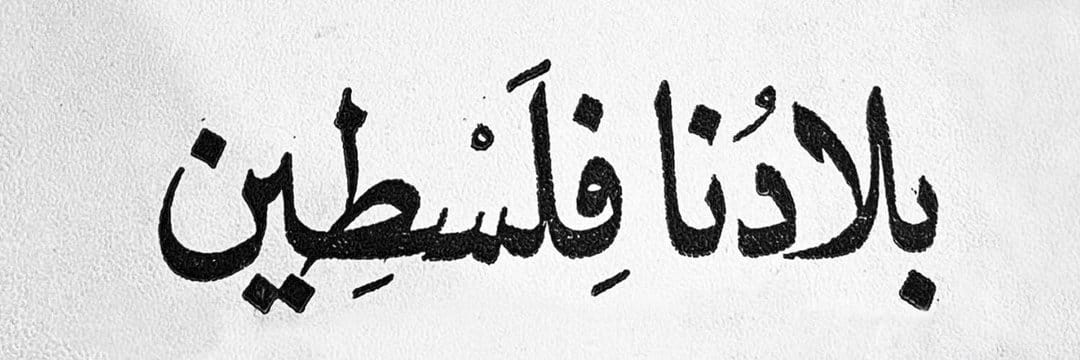 بلادُنا فِلَسْطِين